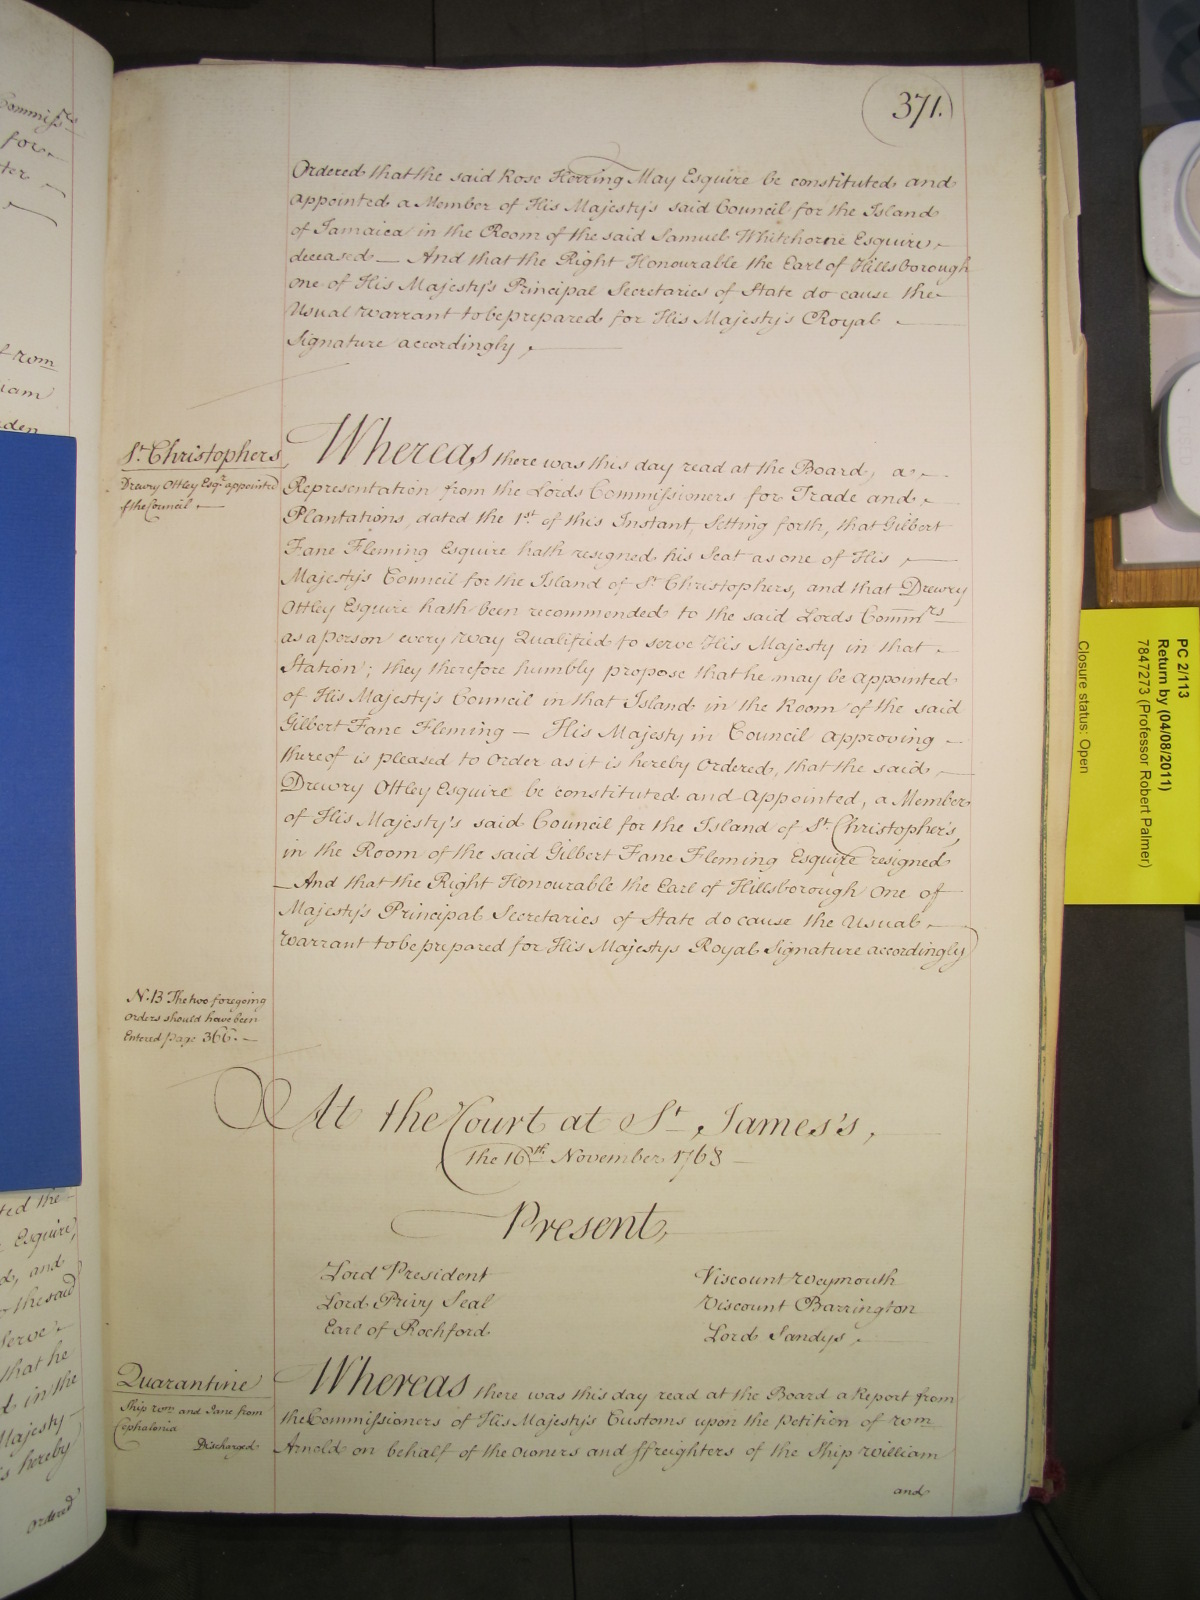 371.
Ordered that the said Rose Herring May Esquire be constituted and
appointed a Member of His Majesty's said Council for the Island
of Jamaica in the Room of the said Samuel Whitehorne Esquire
deceased — And that the Right Honourable the Earl of Hillsborough
one of His Majesty's Principal Secretaries of State do cause the
Usual Warrant to be prepared for His Majesty's Royal
Signature accordingly,
St. Christophers
Drewry Ottley Esqr. appointed
of the Council
Whereas there was this day read at the Board, a
Representation from the Lords Commissioners for Trade and
Plantations, dated the 1st. of this Instant, Setting forth, that Gilbert
Fane Fleming Esquire hath resigned his Seat as one of His
Majesty's Council for the Island of St. Christophers, and that Drewry
Ottley Esquire hath been recommended to the said Lords Commrs
as a person every way Qualified to serve His Majesty in that
Station; they therefore humbly propose that he may be appointed
of His Majesty's Council in that Island in the Room of the said
Gilbert Fane Fleming — His Majesty in Council approving
thereof is pleased to order as it is hereby Ordered, that the said
Drewry Ottley Esquire be constituted and appointed, a Member
of His Majesty's said Council for the Island of St. Christopher's,
in the Room of the said Gilbert Fane Fleming Esquire resigned
— And that the Right Honourable the Earl of Hillsborough One of
Majesty's Principal Secretaries of State do cause the Usual
Warrant to be prepared for His Majestys Royal Signature accordingly
N.B The two foregoing
orders should have been
Entered page 366. —
At the Court at St. James's,
the 16th. November 1768 —
Present,
Lord President
Viscount Weymouth
Lord Privy Seal
Viscount Barrington
Earl of Rochford
Lord Sandys,
Quarantine
Ship Wm. and Jane from
Cephalonia
Discharged
Whereas there was this day read at the Board a Report from
the Commissioners of His Majesty's Customs upon the petition of Wm
Arnold on behalf of the Owners and ffreighters of the Ship William
and
PC 2/113
Return by (04/08/2011)
7847273 (Professor Robert Palmer)
Closure status: Open